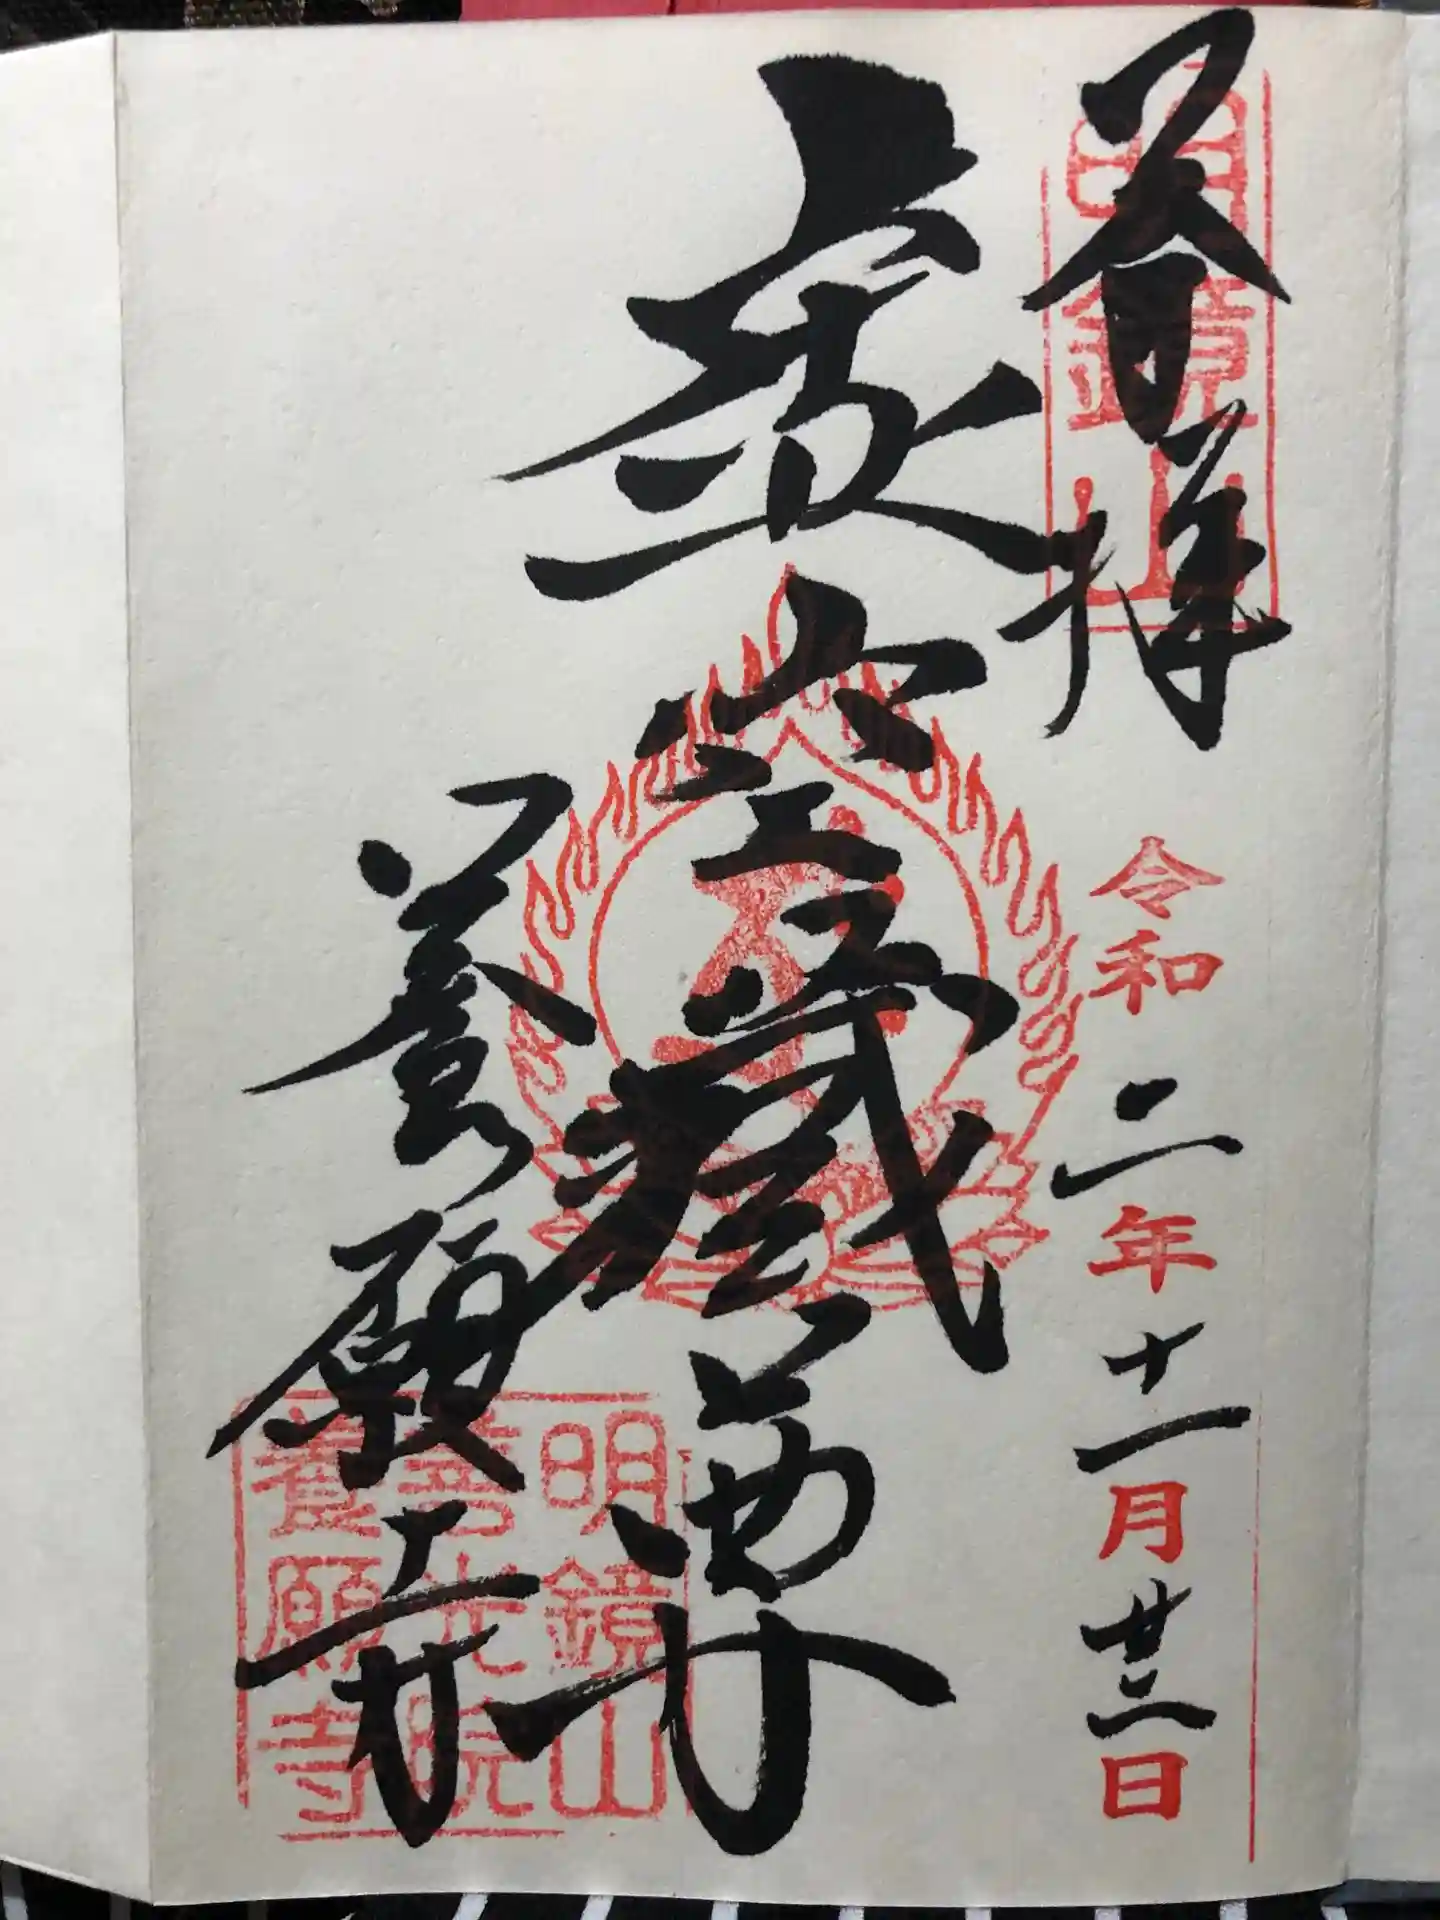 奉拝
明鏡山
令和二年十一月廿二日
虚空蔵尊
養願寺
明鏡山
善光院
養願寺